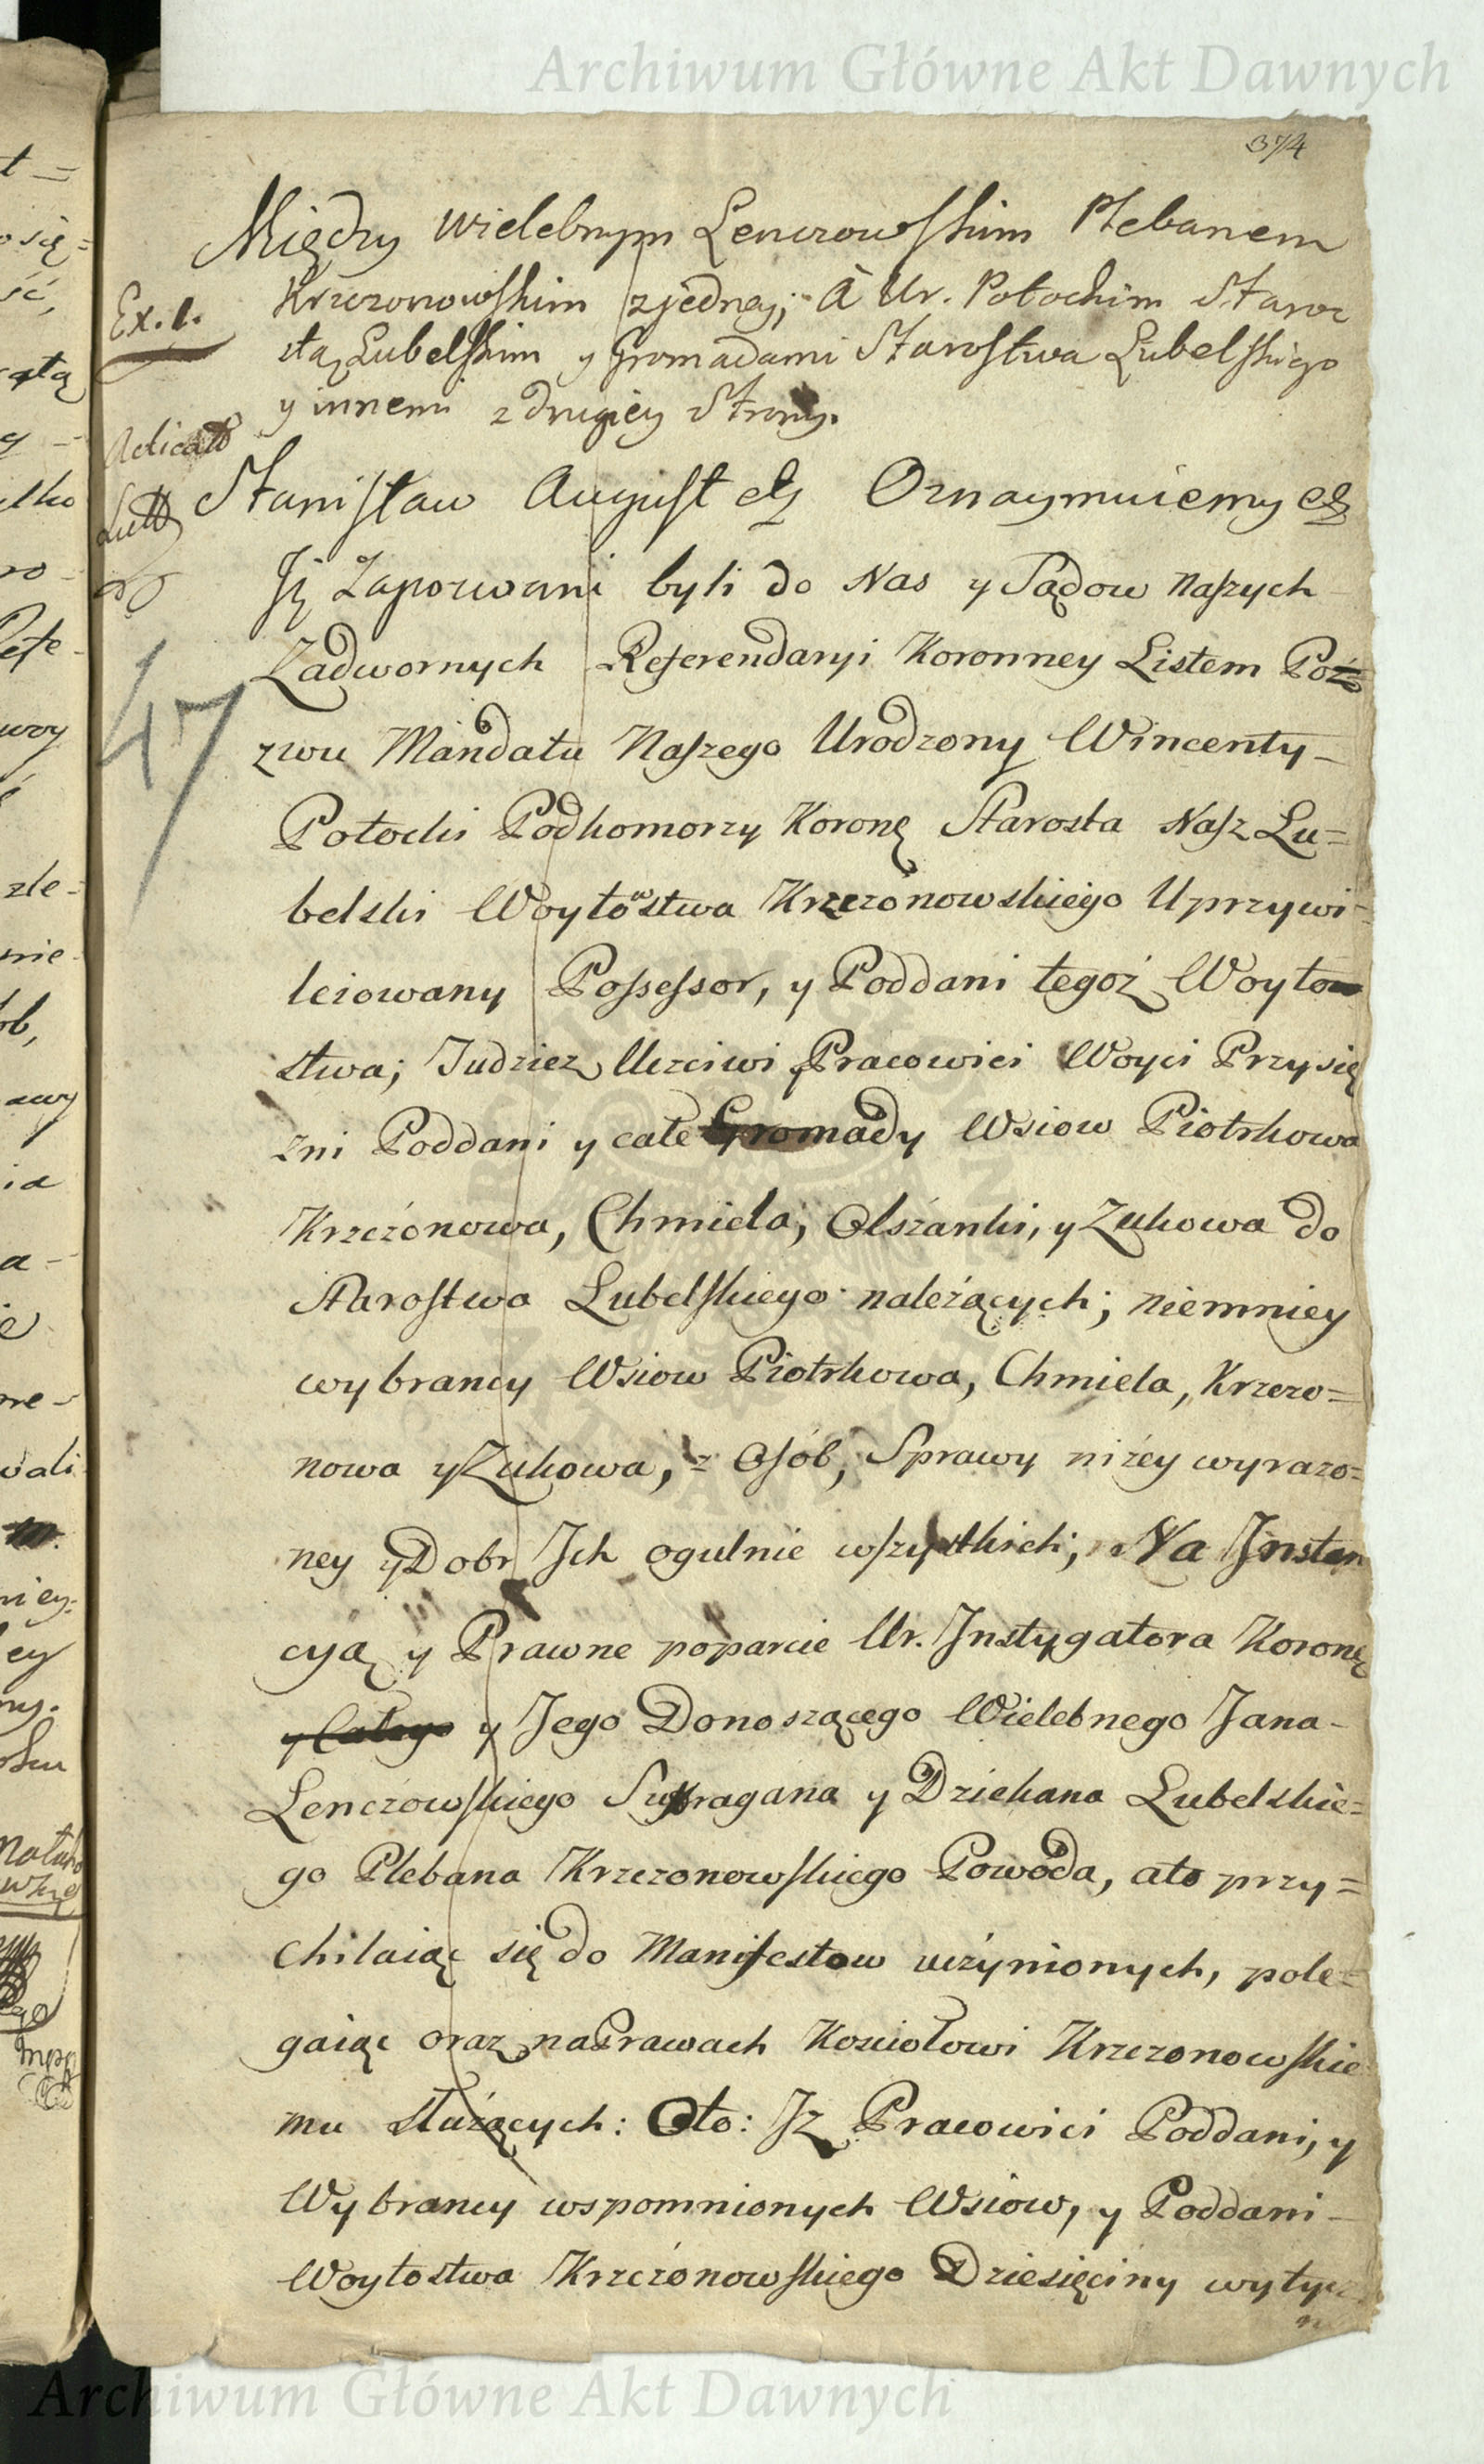 Archiwum Główne Akt Dawnych
374
Między Wielebnym Lenczowskim Plebanem
Krzczonowskim z jedney; A Ur. Potockim Staro=
stą Lubelskim y Gromadami Starostwa Lubelskiego
y innemi z drugiey Strony.
Ex. 1.
Stanisław August etc Oznaymuiemy etc
Iż Zapozwani byli do Nas y Sądow Naszych
Zadwornych Referendaryi Koronney Listem Po=
zwu Mandatu Naszego Urodzony Wincenty
Potocki Podkomorzy Koronę Starosta Nasz Lu=
belski Woytowstwa Krzczonowskiego Uprzywi=
leiowany Possessor, y Poddani tegoż Woytow
stwa; Tudzież Uczciwi y Pracowici Woyci Przysię
żni Poddani y całe Gromady Wsiow Piotrkowa
Krzczonowa, Chmiela, Olszanki, y Zukowa do
Starostwa Lubelskiego należących; niemniey
wybrancy Wsiow Piotrkowa, Chmiela, Krzczo=
nowa y Zukowa, z Osób, Sprawy niżey wyrazo=
ney y Dobr Ich ogulnie wszystkich; Na Instan
cyą y Prawne poparcie Ur. Instygatora Koronę
y Całego y Jego Donoszącego Wielebnego Jana
Lenczowskiego Suffragana y Dziekana Lubelskie=
go Plebana Krzczonowskiego Powoda, a to przy=
chilaiąc się do Manifestow uczynionych, pole=
gaiąc oraz na Prawach Kosciołowi Krzczonowskie
mu służących: Oto: Iz Pracowici Poddani, y
Wybrancy wspomnionych Wsiow, y Poddani
Woytostwa Krzczonowskiego Dziesięciny wytycz
47
Archiwum Główne Akt Dawnych